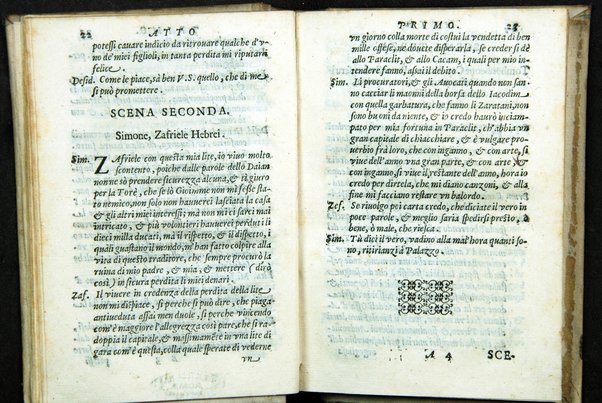 22 ATTO
potessi cauare indicio da ritrouare qualche d'v-
no de'miei figlioli, in tanta perdita mi riputarei
felice.
Desid. Come le piace, sà ben V.S. quello, che di me
si può promettere.
SCENA SECONDA.
Simone, Zafriele Hebrei.
Sim. ZAfriele con questa mia lite, io viuo molto
scontento, poiche dalle parole dello Daian
non ne sò prendere sicurezza alcuna, & ti giuro
per la Torè, che se lo Goi nome non mi fosse stato
nemico, non solo non hauuerei lasciata la casa
& gli altri miei interessi; ma non mi ci sarei mai
intricato, & più volontieri hauuerei perduti li
dieci milla ducati, mà il rispetto, & il dispetto, i
quali guastano il mondo, m'han fatto colpire alla
vita di questo traditore, che sempre procurò la
ruina di mio padre, & mia, & mettere (dirò
così) in sicura li miei denari.
Zaf. Il viuere in credenza della perdita della lite
non mi dispiace, si perche si può dire, che piaga
antiueduta assai men duole, si perche vincendo
com'è maggiore l'allegrezza così pare, che si ra-
doppia il capitale, & massimamète in vna lite di
gara com'è questa, colla quale sperate di vederne
vn
PRIMO. 23
vn giorno colla morte di costui la vendetta di ben
mille offese, ne douete disperarla, se creder si dè
allo Paraclit, & allo Cacam, i quali per mio in-
tendere fanno, assai il debito.
Sim. Li procuratori, & gli Auuocati quando non sano
cacciar li mannini della borsa dello Iacodim
con quella garbatura, che fanno li Zaratani, non
sono buoni da niente, & io credo hauerò inciam-
pato per mia fortuna in Paraclit, ch'abbia vn
gran capitale di chiacchiare, & è vulgare pro-
uerbio frà loro, che con inganno, & con arte, si
viue dell'anno vna gran parte, & con arte, &
con inganno, si viue il restante dell'anno, hora io
credo per dirtela, che mi diano canzoni, & alla
fine mi facciano restare vn balordo.
Zaf. Se riuolgo poi carta credo, che diciate il vero in
poce parole, & meglio saria spedirsi presto, ò
bene, ò male, che riesca.
Sim. Tù dici il vero, vadino alla mal'hora quanti so-
no, ritirianzi à Palazzo.
A 4 SCE-